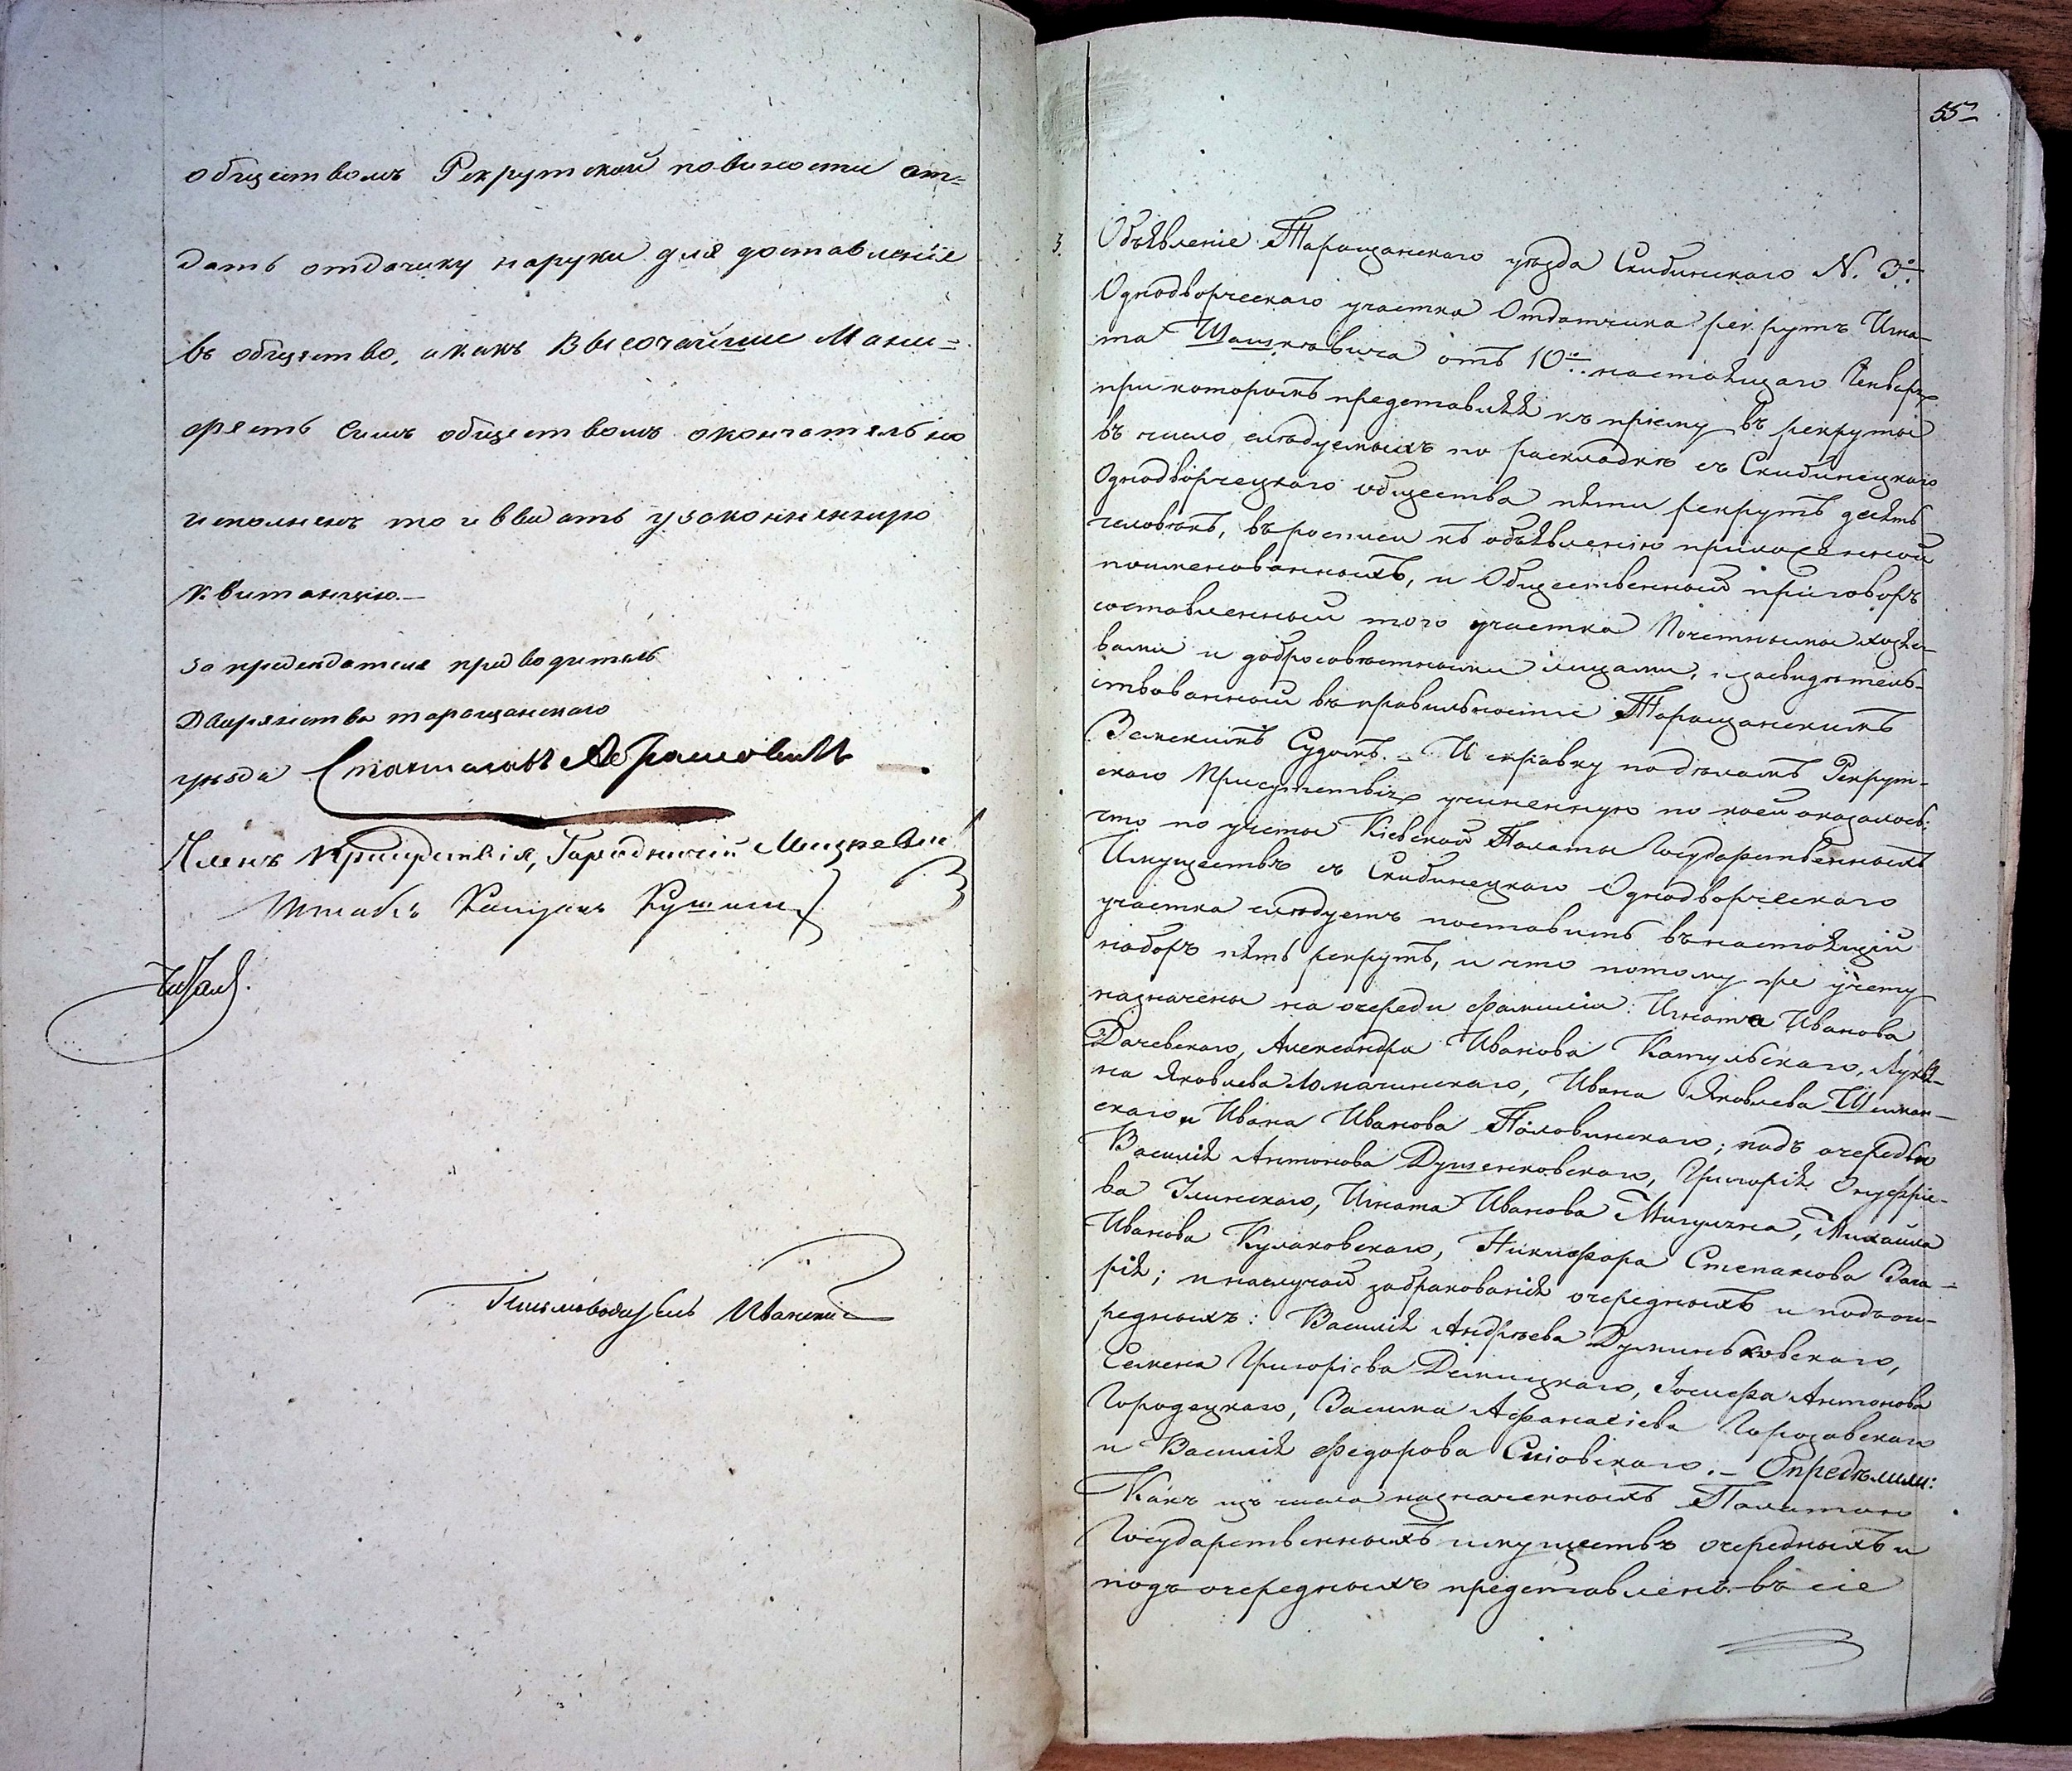 обществомъ Рекрутской повиности от=
дать отдачику наруки для доставленіе
въ общество, а какъ Высочайшие Мани=
фестъ симъ обществомъ окончательно
исполненъ то и выдать узаконненную
квитанцію.—
За председателя предводитель
Дворянства таращанского
уезда Станиславъ Абрамовичь
Членъ присудствія, Городничій
Штабсъ Капитанъ
Письмоводитель Иванский
55
3.
Объявленіе Таращанскаго уезда Скибинскаго N. 3го
Однодворческаго участка Отдатчика рекрутъ Игна-
та Шашкевича отъ 10го настоящаго Генваря
при которомъ представляя къ пріему въ рекруты
въ число следуемыхъ по раскладке съ Скибинецкаго
Однодворецкаго общества пяти рекрутъ десять
человекъ, въ росписи къ объявленію приложенной
поименованныхъ, и Общественный приговоръ
составленный того участка Почетными хозяе-
вами и добросовестными лицами, и засвидетель-
ствованный въ правильности Таращанскимъ
Земскимъ Судомъ. – И справку по деламъ Рекрут-
скаго Присутствія учиненную по коей оказалось:
что по учету Кіевской Палаты Государственныхъ
Имуществъ съ Скибинецкаго Однодворческаго
участка следуетъ поставить въ настоящій
наборъ пять рекрутъ, и что потому же учету
назначены на очереди фамиліи: Игната Иванова
Дачевскаго, Александра Иванова Катульскаго, Лукья-
на Яковлева Ломачинскаго, Ивана Яковлева Шиман-
скаго и Ивана Иванова Половинскаго; подъ очередью
Василія Антонова Душенковскаго, Григорія Онуфріе-
ва Илинскаго, Игната Иванова Мигулина, Михаила
Иванова Кулаковскаго, Никифора Степанова Зага-
рія; и наслучай забракованія очередныхъ и подъоче-
редныхъ: Василія Андреева Думиньковскаго,
Семена Григоріева Демицкаго, Іосифа Антонова
Городецкаго, Василия Афанасіева Городавскаго
и Василія Федорова Сніовскаго. – Определили:
Какъ изъ числа назначенныхъ Палатою
Государственныхъ имуществъ очередныхъ и
подъ очередныхъ представлены въ сіе